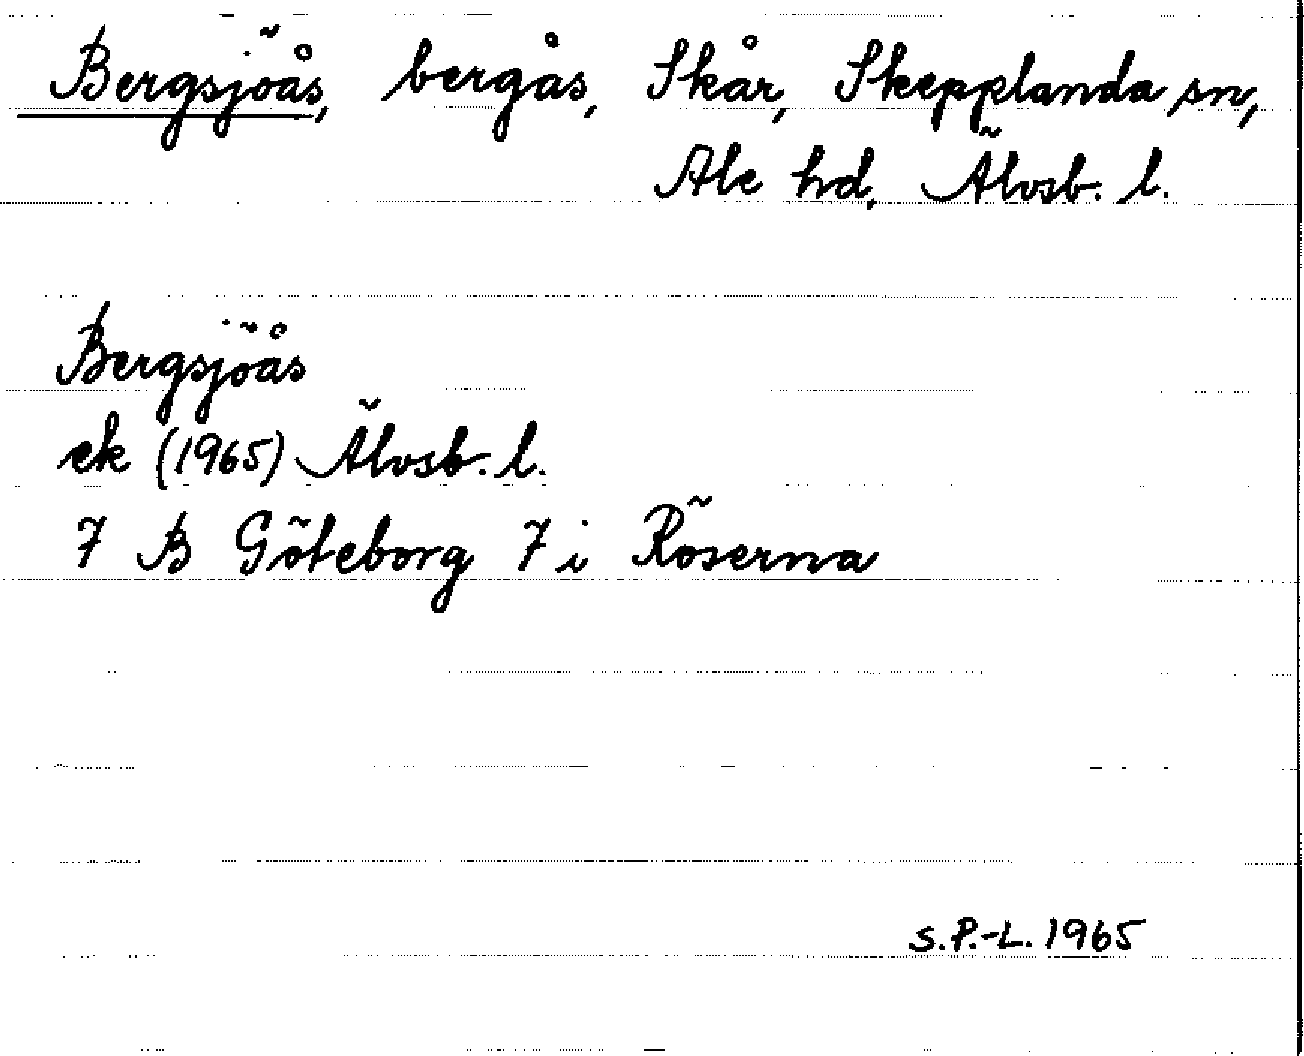 Bergsjöås, bergås, Skår, Skepplanda sn,
Ale hd, Älvsb. l.
Bergsjöås
ek (1965) Älvsb. l.
7 B Göteborg 7 i Röserna
S.P.-L. 1965